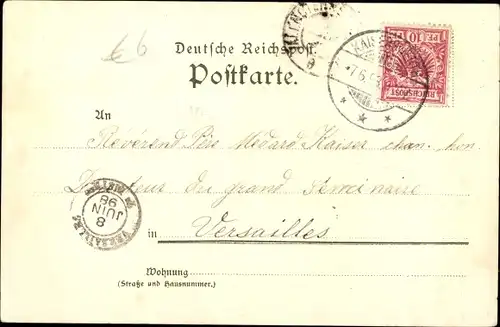 66
Deutsche Reichspost.
Postkarte.
KAISER
7.6.
10 PF 10
REICHSPOST
An
Révérend Père Médard Kaiser chan. hon.
Directeur du grand Séminaire
in Versailles
VERSAILLES
8
JUIN
98
Wohnung
(Straße und Hausnummer.)